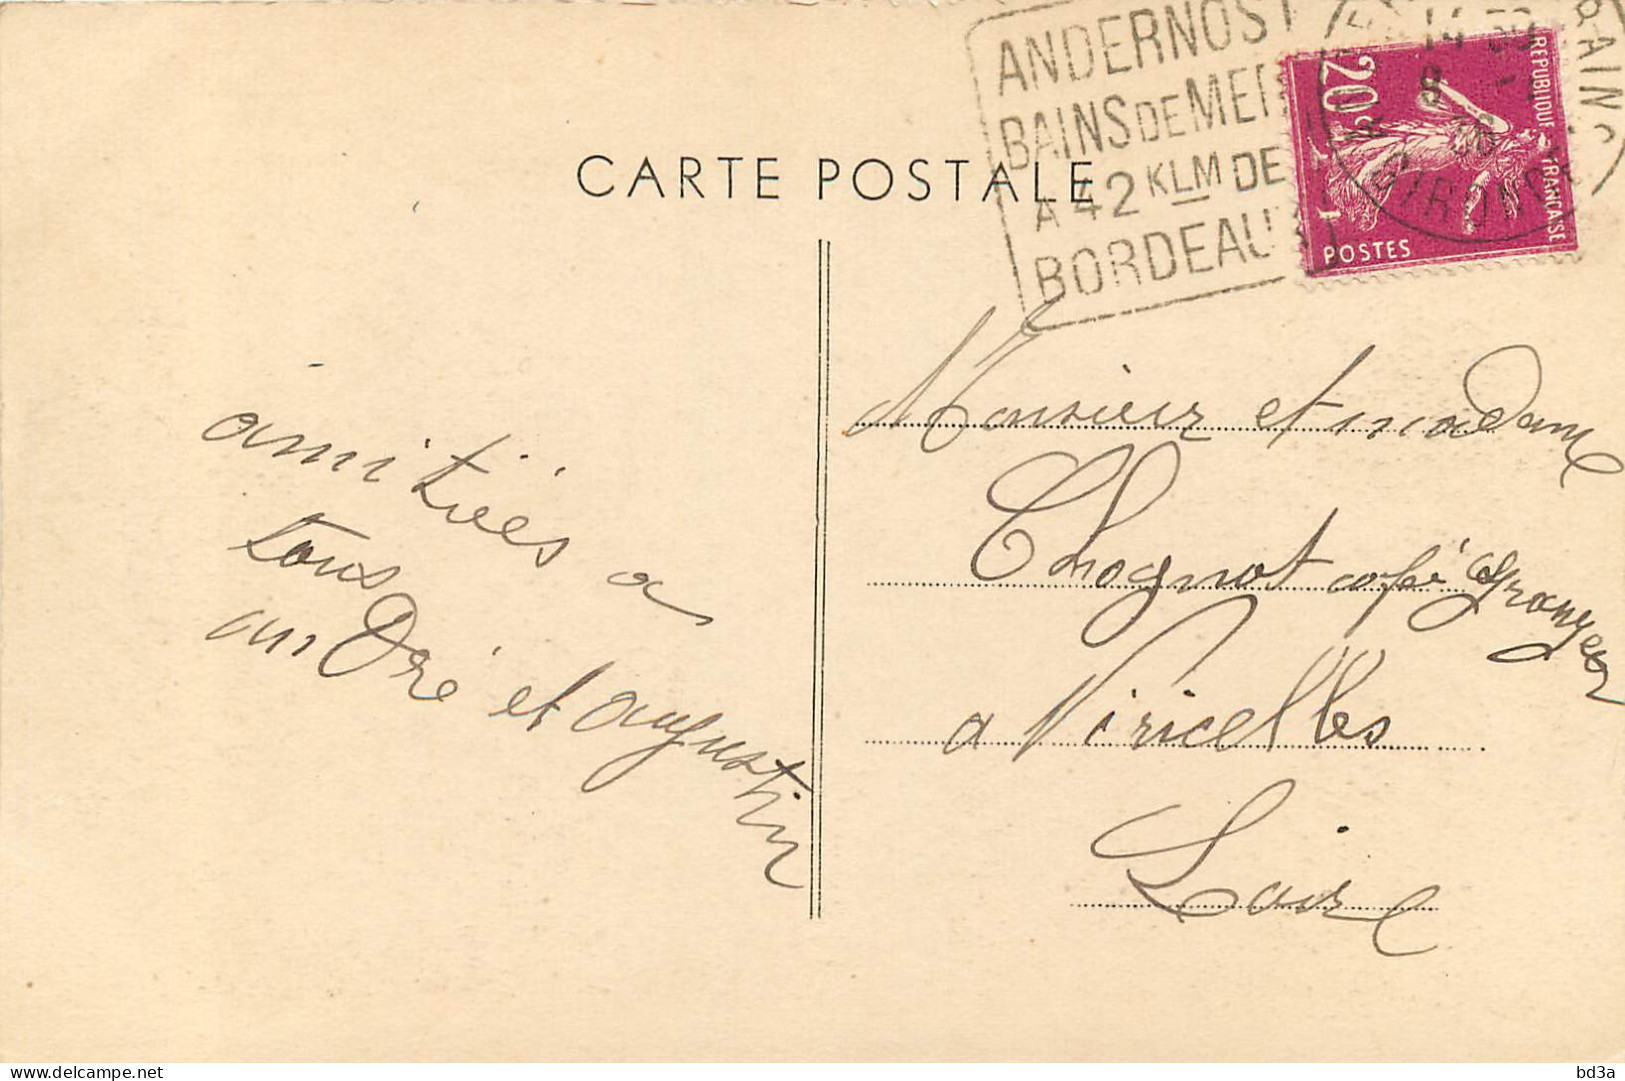 CARTE POSTALE
ANDERNOS
BAINS DE MER
A 42 KLM DE
BORDEAUX
14 30
9
36
BAINS
GIRONDE
20c
REPUBLIQUE FRANÇAISE
POSTES
amitiés a
tous
andré et augustin
Monsieur et madame
Chognot café Granger
a Viricelles
Loire
delcampe.net
bd3a